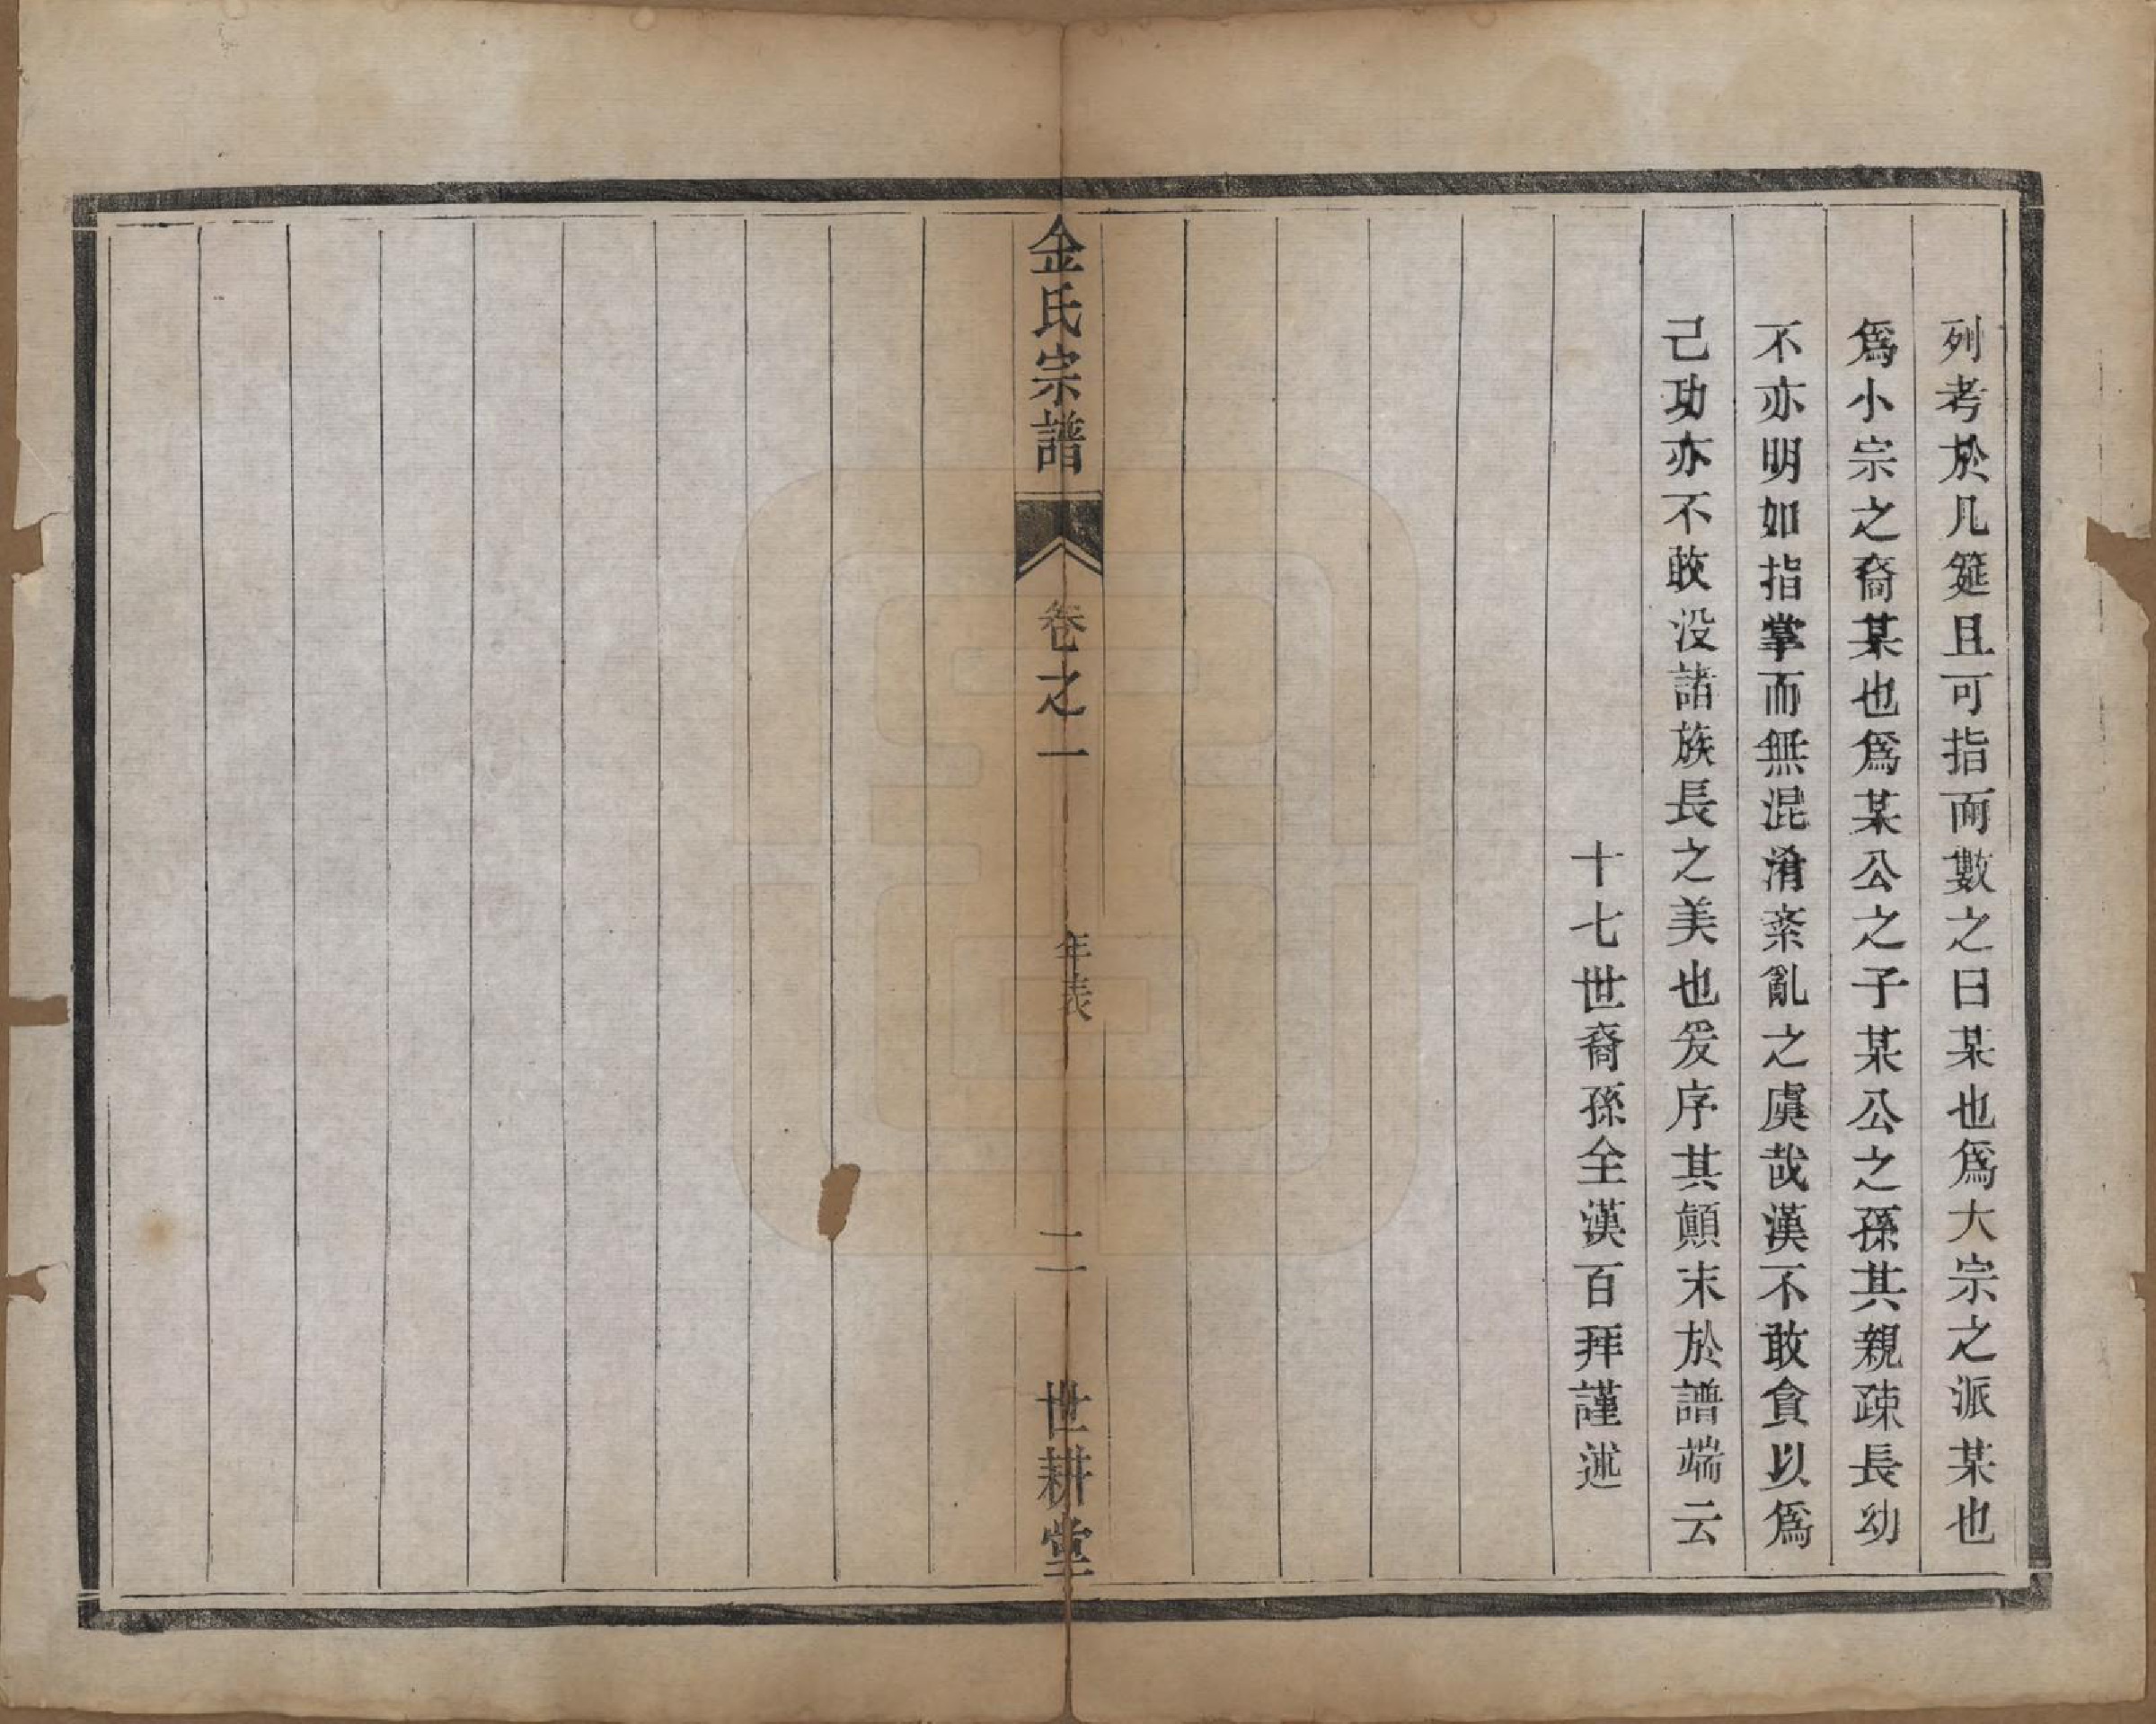 列考於几筵且可指而數之曰某也爲大宗之派某也
爲小宗之裔某也爲某公之子某公之孫其親疎長幼
不亦明如指掌而無混淆紊亂之虞哉漢不敢貪以爲
己功亦不敢没諸族長之美也爰序其顛末於譜端云
十七世裔孫全漢百拜謹述
金氏宗譜
卷之一
年表
二
世耕堂